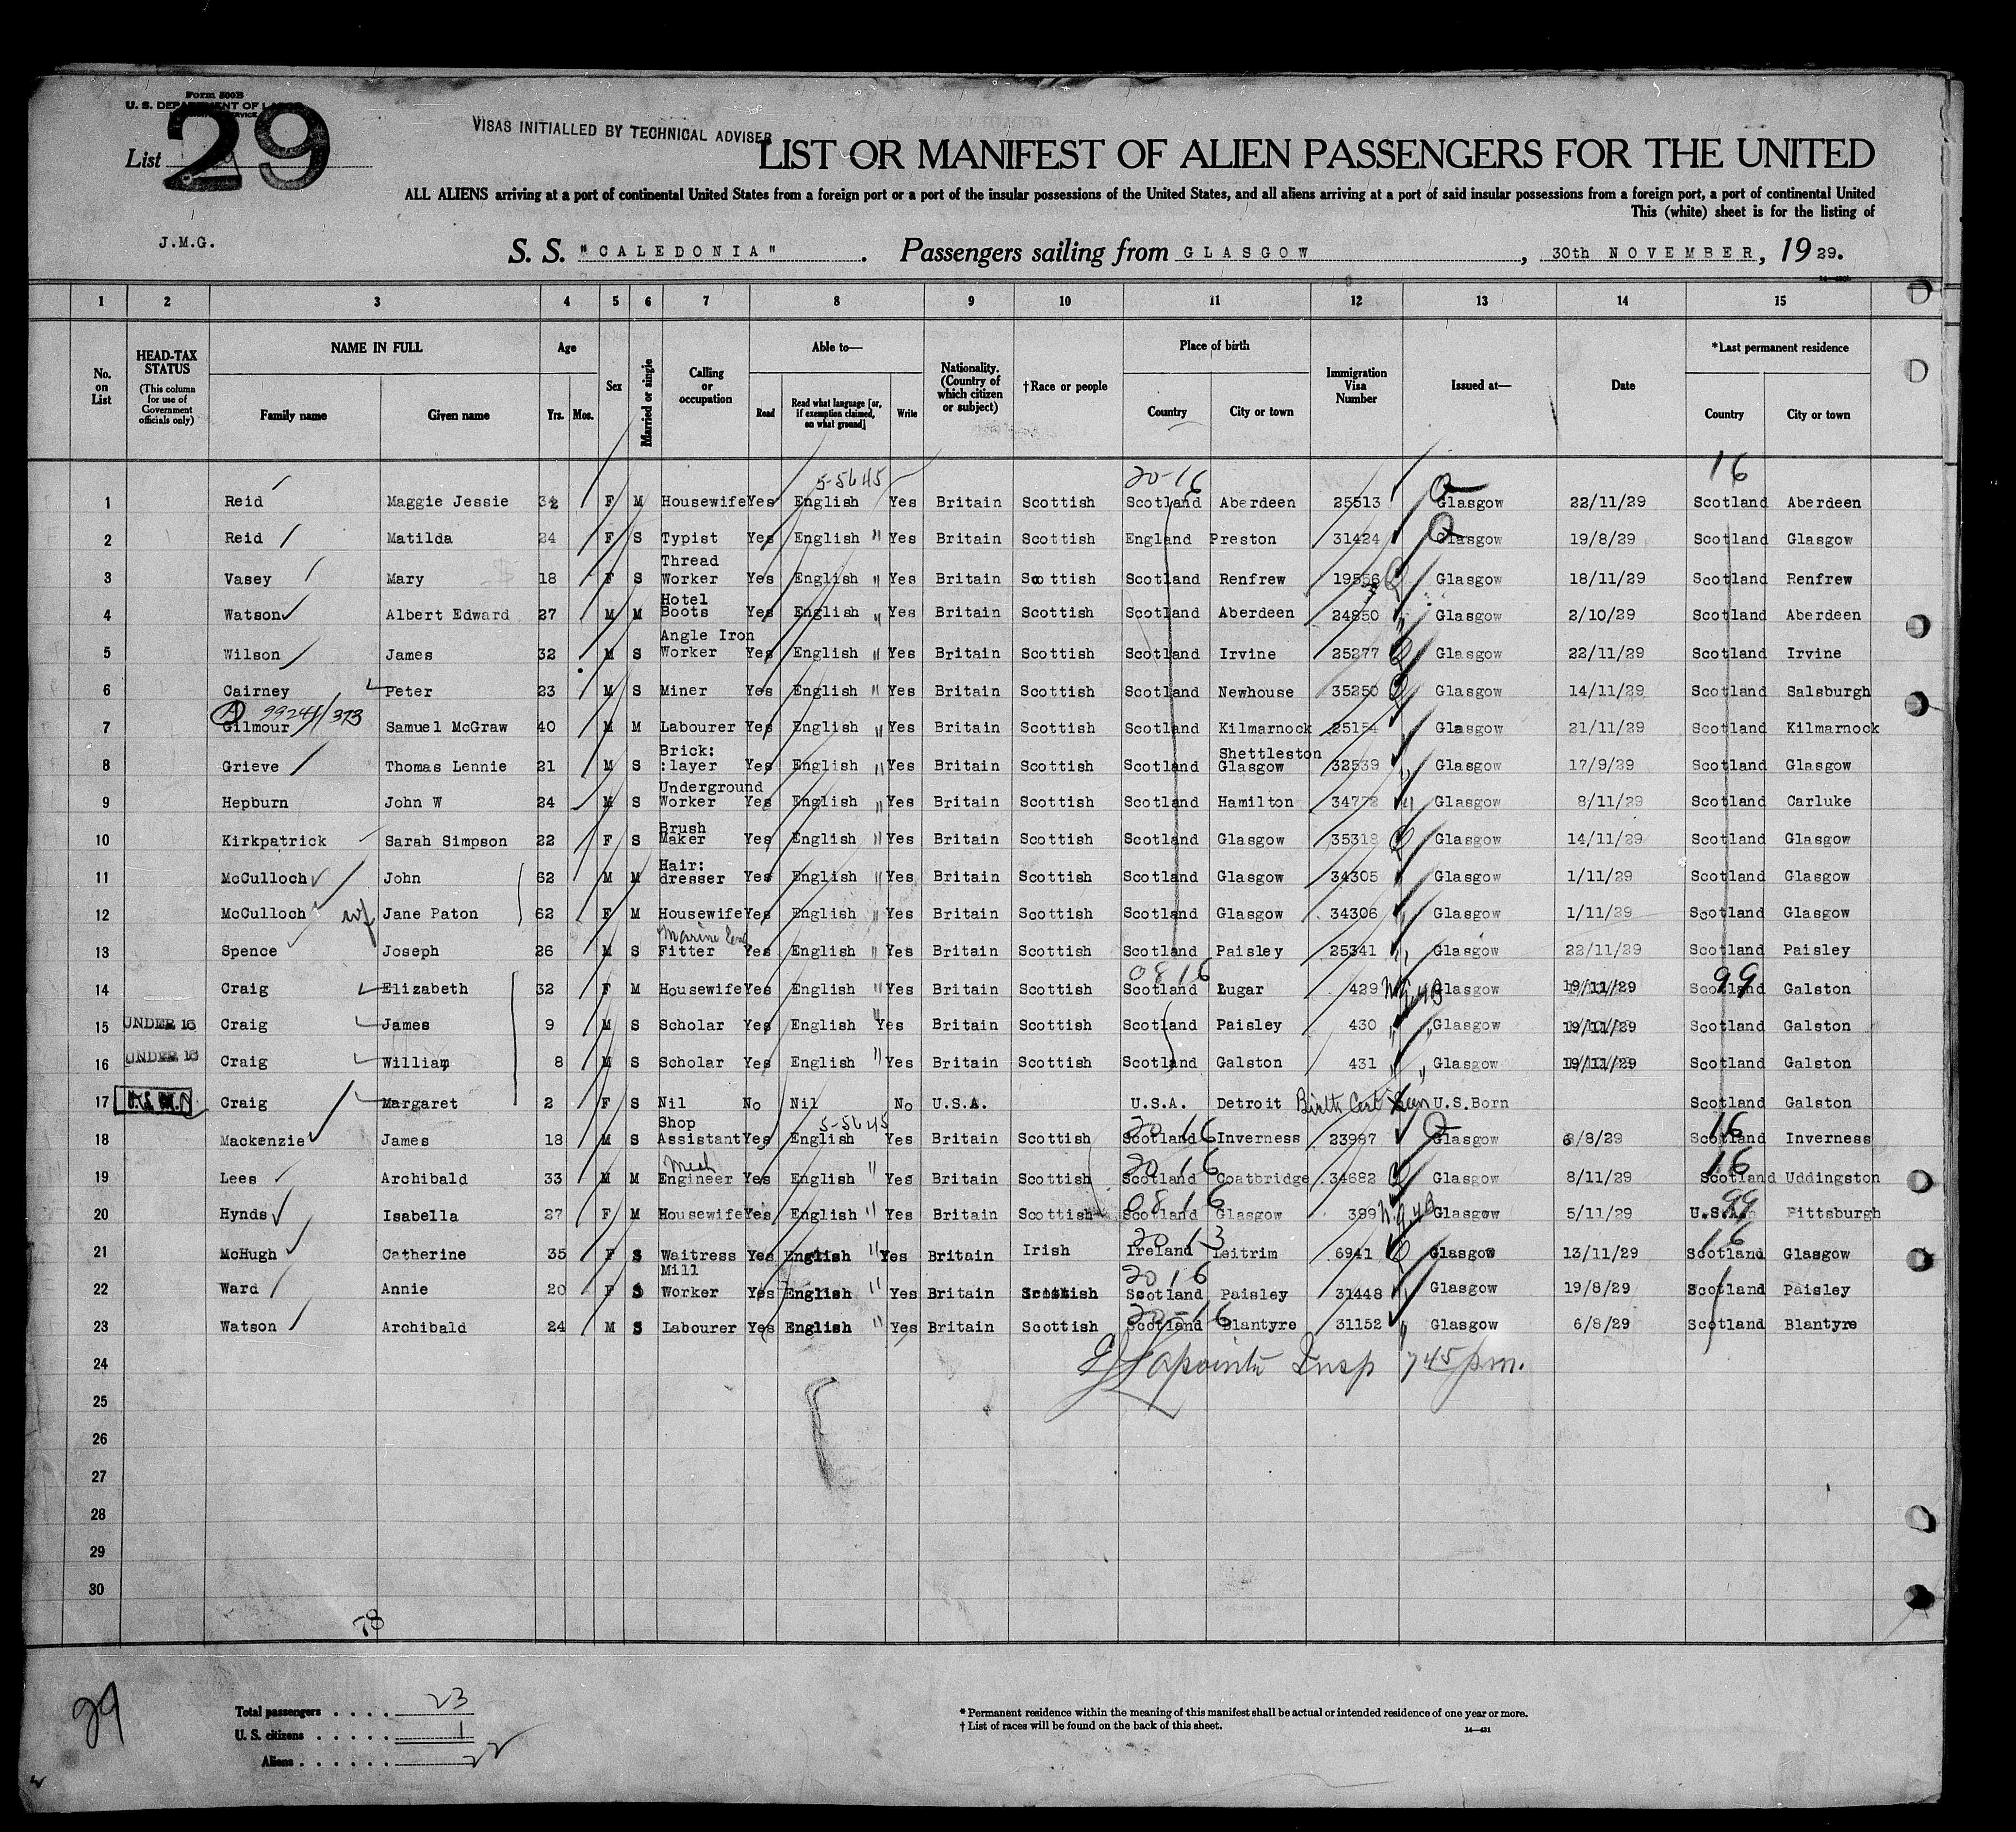 Form 500B
U. S. DEPARTMENT OF LABOR
List 29
VISAS INITIALLED BY TECHNICAL ADVISER
LIST OR MANIFEST OF ALIEN PASSENGERS FOR THE UNITED
ALL ALIENS arriving at a port of continental United States from a foreign port or a port of the insular possessions of the United States, and all aliens arriving at a port of said insular possessions from a foreign port, a port of continental United
This (white) sheet is for the listing of
J.M.G.
S. S. "CALEDONIA". Passengers sailing from GLASGOW, 30th NOVEMBER, 1929.
1 2 3 4 5 6 7 8 9 10 11 12 13 14 15
No. on List
HEAD-TAX STATUS (This column for use of Government officials only)
NAME IN FULL Family name Given name
Age Yrs. Mos.
Sex
Married or single
Calling or occupation
Able to— Read Read what language [or, if exemption claimed, on what ground] Write
Nationality. (Country of which citizen or subject)
†Race or people
Place of birth Country City or town
Immigration Visa Number
Issued at—
Date
*Last permanent residence Country City or town
5-5645 20-16 16
1 Reid Maggie Jessie 32 F M Housewife Yes English Yes Britain Scottish Scotland Aberdeen 25513 Glasgow 22/11/29 Scotland Aberdeen
2 Reid Matilda 24 F S Typist Yes English " Yes Britain Scottish England Preston 31424 Glasgow 19/8/29 Scotland Glasgow
3 Vasey Mary 18 F S Thread Worker Yes English " Yes Britain Scottish Scotland Renfrew 19556 Glasgow 18/11/29 Scotland Renfrew
4 Watson Albert Edward 27 M M Hotel Boots Yes English " Yes Britain Scottish Scotland Aberdeen 24850 Glasgow 2/10/29 Scotland Aberdeen
5 Wilson James 32 M S Angle Iron Worker Yes English " Yes Britain Scottish Scotland Irvine 25277 Glasgow 22/11/29 Scotland Irvine
6 Cairney Peter 23 M S Miner Yes English " Yes Britain Scottish Scotland Newhouse 35250 Glasgow 14/11/29 Scotland Salsburgh
7 Gilmour Samuel McGraw 40 M M Labourer Yes English " Yes Britain Scottish Scotland Kilmarnock 25154 Glasgow 21/11/29 Scotland Kilmarnock
8 Grieve Thomas Lennie 21 M S Brick: :layer Yes English " Yes Britain Scottish Scotland Shettleston Glasgow 32539 Glasgow 17/9/29 Scotland Glasgow
9 Hepburn John W 24 M S Underground Worker Yes English " Yes Britain Scottish Scotland Hamilton 34772 Glasgow 8/11/29 Scotland Carluke
10 Kirkpatrick Sarah Simpson 22 F S Brush Maker Yes English " Yes Britain Scottish Scotland Glasgow 35318 Glasgow 14/11/29 Scotland Glasgow
11 McCulloch John 62 M M Hair: dresser Yes English " Yes Britain Scottish Scotland Glasgow 34305 Glasgow 1/11/29 Scotland Glasgow
12 McCulloch wf Jane Paton 62 F M Housewife Yes English " Yes Britain Scottish Scotland Glasgow 34306 Glasgow 1/11/29 Scotland Glasgow
13 Spence Joseph 26 M S Marine Fitter Yes English " Yes Britain Scottish Scotland Paisley 25341 Glasgow 22/11/29 Scotland Paisley
08 16 99
14 Craig Elizabeth 32 F M Housewife Yes English " Yes Britain Scottish Scotland Lugar 429 Glasgow 19/11/29 Scotland Galston
15 UNDER 16 Craig James 9 M S Scholar Yes English " Yes Britain Scottish Scotland Paisley 430 " " Glasgow 19/11/29 Scotland Galston
16 UNDER 16 Craig William 8 M S Scholar Yes English " Yes Britain Scottish Scotland Galston 431 " " Glasgow 19/11/29 Scotland Galston
17 Craig Margaret 2 F S Nil No Nil No U.S.A. U.S.A. Detroit Birth Cert Seen U.S.Born Scotland Galston
5-5645 20 16 16
18 Mackenzie James 18 M S Shop Assistant Yes English Yes Britain Scottish Scotland Inverness 23987 Glasgow 6/8/29 Scotland Inverness
20 16 16
19 Lees Archibald 33 M M Mech Engineer Yes English " Yes Britain Scottish Scotland Coatbridge 34682 Glasgow 8/11/29 Scotland Uddingston
08 16 99
20 Hynds Isabella 27 F M Housewife Yes English " Yes Britain Scottish Scotland Glasgow 389 Glasgow 5/11/29 U.S.A. Pittsburgh
20 13 16
21 McHugh Catherine 35 F S Waitress Yes English " Yes Britain Irish Ireland Leitrim 6941 Glasgow 13/11/29 Scotland Glasgow
20 16
22 Ward Annie 20 F S Mill Worker Yes English " Yes Britain Scottish Scotland Paisley 31448 Glasgow 19/8/29 Scotland Paisley
20-16
23 Watson Archibald 24 M S Labourer Yes English " Yes Britain Scottish Scotland Blantyre 31152 Glasgow 6/8/29 Scotland Blantyre
24 Lapointe Insp 745 pm.
25
26
27
28
29
30
78
29
Total passengers . . . . 23
U. S. citizens . . . . . 1
Aliens . . . . . . 22
* Permanent residence within the meaning of this manifest shall be actual or intended residence of one year or more.
† List of races will be found on the back of this sheet.
14—431